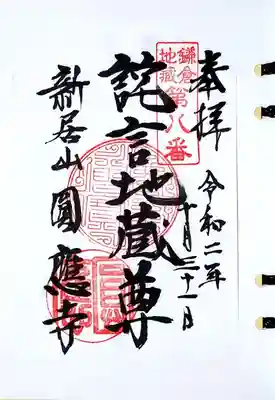 奉拝
令和二年
十月三十一日
鎌倉
地蔵
第八番
詫言地蔵尊
新居山圓應寺